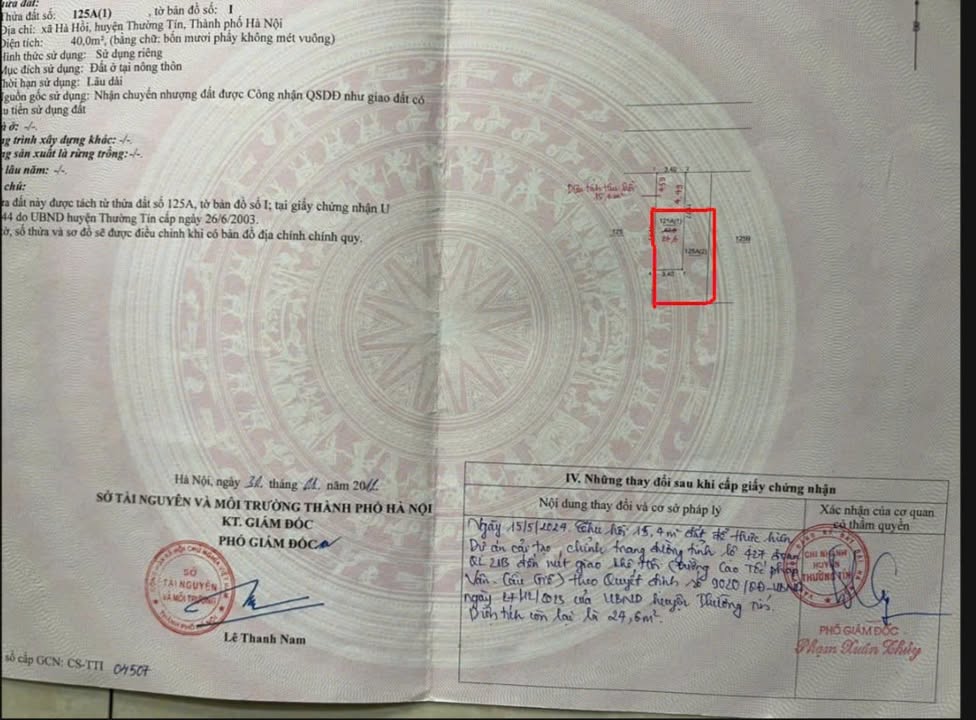 Thửa đất:
Thửa đất số: 125A(1) , tờ bản đồ số: I
Địa chỉ: xã Hà Hồi, huyện Thường Tín, Thành phố Hà Nội
Diện tích: 40,0m², (bằng chữ: bốn mươi phẩy không mét vuông)
Hình thức sử dụng: Sử dụng riêng
Mục đích sử dụng: Đất ở tại nông thôn
Thời hạn sử dụng: Lâu dài
Nguồn gốc sử dụng: Nhận chuyển nhượng đất được Công nhận QSDĐ như giao đất có
thu tiền sử dụng đất
à ở: -/-.
ng trình xây dựng khác: -/-.
ng sản xuất là rừng trồng: -/-.
lâu năm: -/-.
chú:
ửa đất này được tách từ thửa đất số 125A, tờ bản đồ số I; tại giấy chứng nhận U
44 do UBND huyện Thường Tín cấp ngày 26/6/2003.
tờ, số thửa và sơ đồ sẽ được điều chỉnh khi có bản đồ địa chính chính quy.
B
1 3,40 2
Diện tích thu hồi
15,4m²
4,53
4,49
125
125A(1)
40,0
24,6
125A(2)
125B
3,40
Hà Nội, ngày 31 tháng 01 năm 2011
SỞ TÀI NGUYÊN VÀ MÔI TRƯỜNG THÀNH PHỐ HÀ NỘI
KT. GIÁM ĐỐC
PHÓ GIÁM ĐỐC
SỞ
TÀI NGUYÊN
VÀ MÔI TRƯỜNG
Lê Thanh Nam
số cấp GCN: CS-TTI 04507
IV. Những thay đổi sau khi cấp giấy chứng nhận
Nội dung thay đổi và cơ sở pháp lý
Xác nhận của cơ quan
có thẩm quyền
Ngày 15/5/2024. Thu hồi 15,4m² đất để thực hiện
Dự án cải tạo, chỉnh trang đường tỉnh lộ 427 đoạn
QL 21B đến nút giao Khê Hồi (đường Cao Tốc Pháp
Vân - Cầu Giẽ) theo Quyết định số 9020/QĐ-UBND
ngày 27/12/2023 của UBND huyện Thường Tín.
Diện tích còn lại là 24,6m².
CHI NHÁNH
HUYỆN
THƯỜNG TÍN
PHÓ GIÁM ĐỐC
Phạm Xuân Thủy